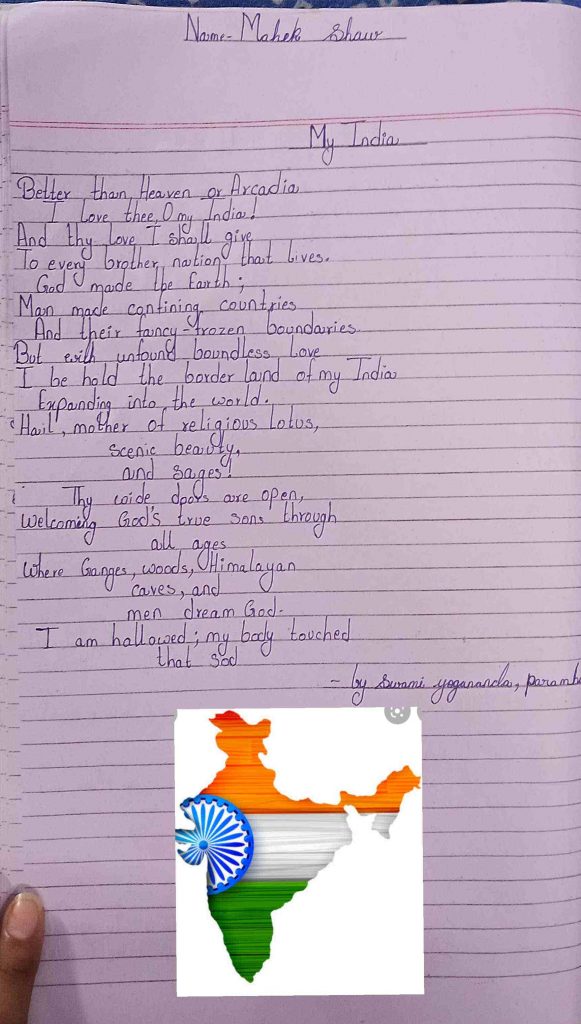 Name- Mahek Shaw
My India
Better than Heaven or Arcadia
I Love thee, O my India!
And thy love I shall give
To every brother nation that lives.
God made the Earth;
Man made confining countries
And their fancy-frozen boundaries.
But with unfound boundless Love
I be hold the border land of my India
Expanding into the world.
Hail, mother of religious Lotus,
scenic beauty,
and sages!
Thy wide doors are open,
Welcoming God's true sons through
all ages
Where Ganges, woods, Himalayan
caves, and
men dream God.
I am hallowed; my body touched
that sod
- by Swami yogananda,